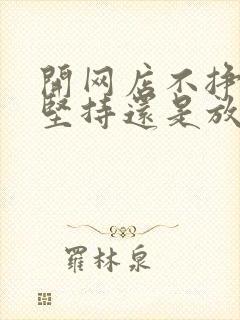 開网店不挣
堅持還是放
羅林泉